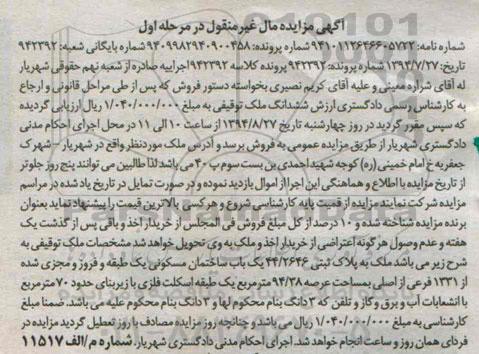 آگهی مزایده مال غیرمنقول در مرحله اول
شماره نامه: ۹۴۱۰۱۱۲۶۴۶۶۰۵۷۲۲ شماره پرونده: ۹۴۰۹۹۸۲۹۴۰۹۰۰۴۵۸ شماره بایگانی شعبه: ۹۴۲۳۹۲
تاریخ: ۱۳۹۴/۷/۲۷ شماره پرونده: ۹۴۲۳۹۲ پرونده کلاسه ۹۴۲۳۹۲ اجراییه صادره از شعبه نهم حقوقی شهریار
له آقای شراره معینی و علیه آقای کریم نصیری بخواسته دستور فروش که پس از طی مراحل قانونی و ارجاع
به کارشناس رسمی دادگستری ارزش ششدانگ ملک توقیفی به مبلغ ۱/۰۴۰/۰۰۰/۰۰۰ ریال ارزیابی گردیده
که سپس مقرر گردید در روز چهارشنبه تاریخ ۱۳۹۴/۸/۲۷ از ساعت ۱۰ الی ۱۱ در محل اجرای احکام مدنی
دادگستری شهریار از طریق مزایده عمومی به فروش برسد و آدرس ملک موردنظر واقع در شهریار - شهرک
جعفریه خ امام خمینی (ره) کوچه شهید احمدی بن بست سوم پ ۴۰ می باشد لذا طالبین می توانند پنج روز جلوتر
از تاریخ مزایده با اطلاع و هماهنگی این اجرا از اموال بازدید نموده و در صورت تمایل در تاریخ یاد شده در مراسم
مزایده شرکت نمایند مزایده از قمیت پایه کارشناسی شروع و هرکس بالاترین قیمت را پیشنهاد نماید بعنوان
برنده مزایده شناخته شده و ۱۰ درصد از کل مبلغ فروش فی المجلس از خریدار اخذ و باقی پس از گذشت یک
هفته و عدم وصول هرگونه اعتراضی از خریدار اخذ و ملک به وی تحویل خواهد شد مشخصات ملک توقیفی به
شرح زیر می باشد ملک به پلاک ثبتی ۴۴/۲۶۴۶ یک باب ساختمان مسکونی یک طبقه و فروز و مجزی شده
از ۱۳۳۱ فرعی از اصلی بمساحت عرصه ۹۴/۳۸ مترمربع یک طبقه اسکلت فلزی با زیربنای حدود ۷۰ مترمربع
با انشعابات آب و برق و گاز و تلفن که ۳ دانگ بنام محکوم لها و ۳ دانگ بنام محکوم علیه می باشد. ضمنا مبلغ
کارشناسی به مبلغ ۱/۰۴۰/۰۰۰/۰۰۰ ریال می باشد و چنانچه روز مزایده مصادف با روز تعطیل گردید مزایده در
فردای همان روز و ساعت انجام خواهد شد. اجرای احکام مدنی دادگستری شهریار. شماره م/الف ۱۱۵۱۷